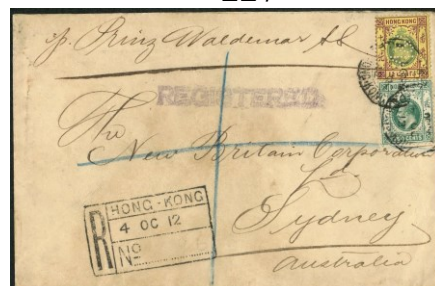 p. Prinz Waldemar SS
HONG KONG
REGISTERED
The
New Britain Corporation
Ld.
Sydney
Australia
R
HONG-KONG
4 OC 12
No